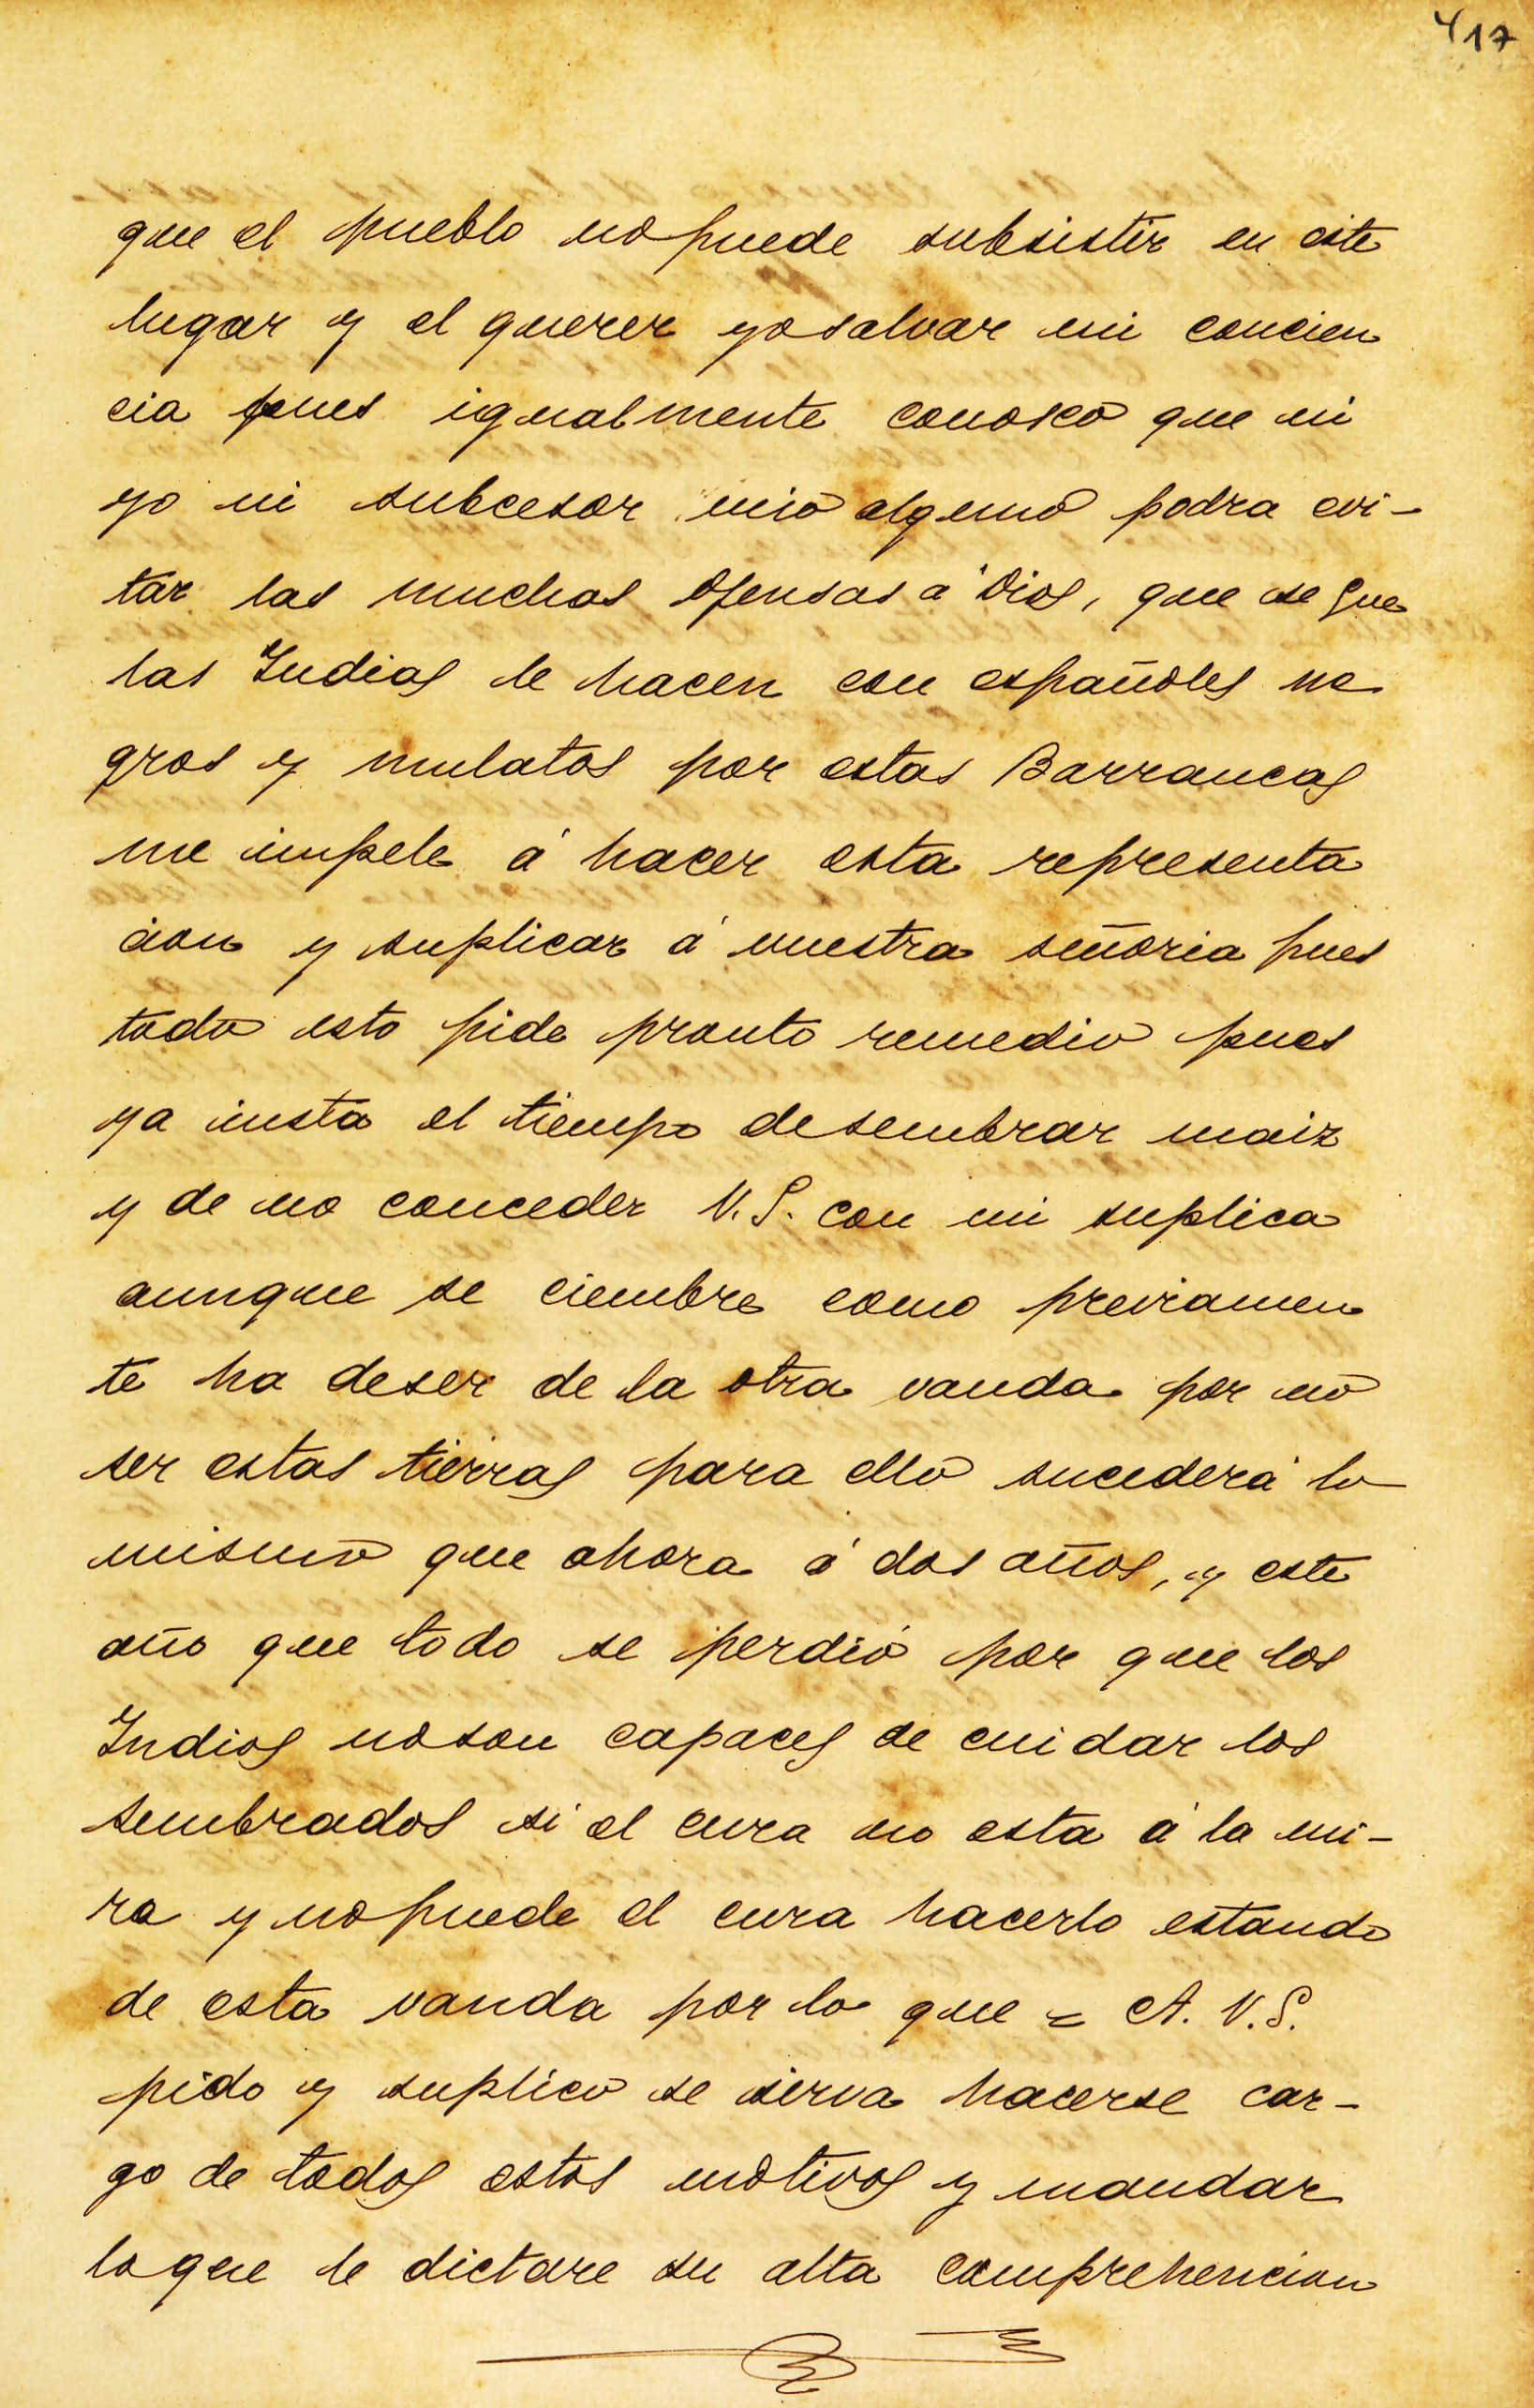 417
que el pueblo no puede subsistir en este
lugar y el querer yo salvar mi concien
cia pues igualmente conosco que ni
yo ni subcesor mio alguno podra evi-
tar las muchas ofensas á Dios, que se que
las Indias le hacen con españoles ne
gros y mulatos por estas Barrancas
me impele á hacer esta representa
cion y suplicar á vuestra señoria pues
todo esto pide pronto remedio pues
ya insta el tiempo de sembrar maiz
y de no conceder V.S. con mi suplica
aunque se ciembre como preciramen
te ha deser de la otra vanda por no
ser estas tierras para ello sucederá lo
mismo que ahora á dos años, y este
año que todo se perdió por que los
Indios no son capaces de cuidar los
sembrados si el cura no esta á la mi-
ra y no puede el cura hacerlo estando
de esta vanda por lo que = A. V.S.
pido y suplico se sirva hacerse car-
go de todos estos motivos y mandar
lo que le dictare su alta comprehencion